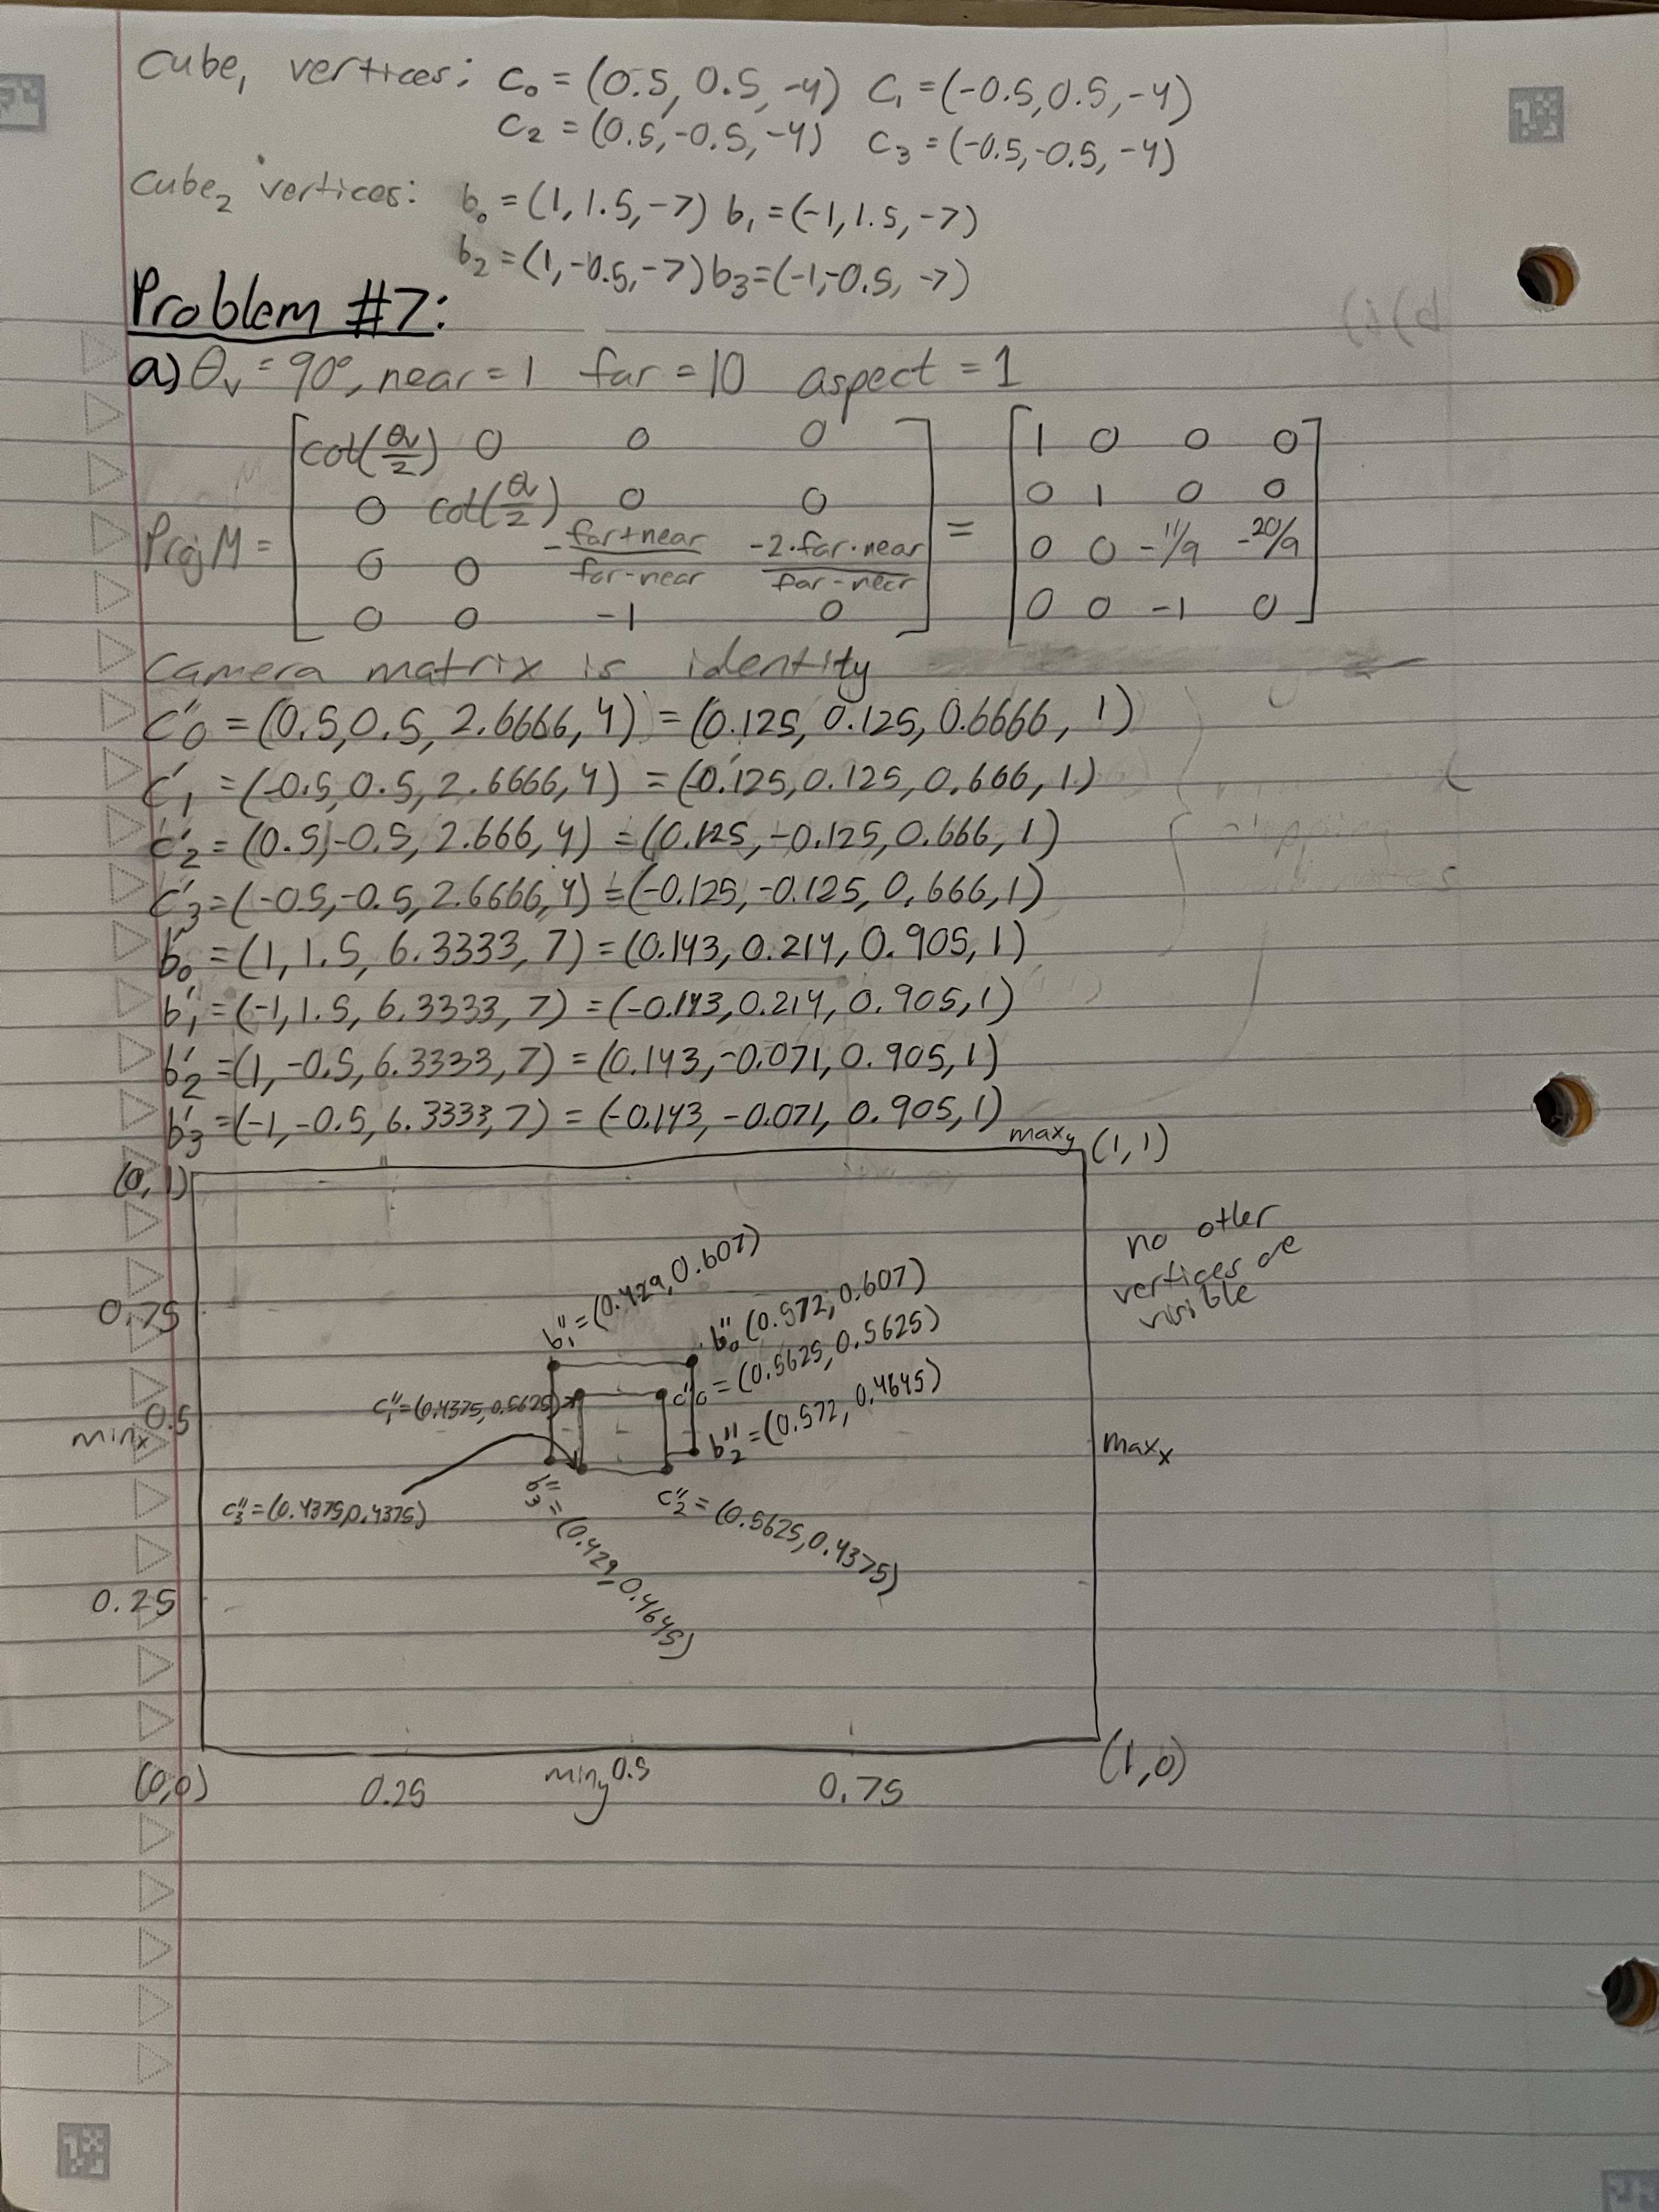 Cube₁ vertices: C₀ = (0.5, 0.5, -4) C₁ = (-0.5, 0.5, -4)
C₂ = (0.5, -0.5, -4) C₃ = (-0.5, -0.5, -4)
Cube₂ vertices: b₀ = (1, 1.5, -7) b₁ = (-1, 1.5, -7)
b₂ = (1, -0.5, -7) b₃ = (-1, -0.5, -7)
Problem #7:
a) θᵥ = 90°, near = 1 far = 10 aspect = 1
cot(θᵥ/2) 0 0 0 1 0 0 0
0 cot(θᵥ/2) 0 0 0 1 0 0
Proj M = 0 0 -(far+near)/(far-near) (-2·far·near)/(far-near) = 0 0 -11/9 -20/9
0 0 -1 0 0 0 -1 0
Camera matrix is identity
C''₀ = (0.5, 0.5, 2.6666, 4) = (0.125, 0.125, 0.6666, 1)
C'₁ = (-0.5, 0.5, 2.6666, 4) = (-0.125, 0.125, 0.666, 1)
C'₂ = (0.5, -0.5, 2.666, 4) = (0.125, -0.125, 0.666, 1)
C'₃ = (-0.5, -0.5, 2.6666, 4) = (-0.125, -0.125, 0.666, 1)
b'₀ = (1, 1.5, 6.3333, 7) = (0.143, 0.214, 0.905, 1)
b'₁ = (-1, 1.5, 6.3333, 7) = (-0.143, 0.214, 0.905, 1)
b'₂ = (1, -0.5, 6.3333, 7) = (0.143, -0.071, 0.905, 1)
b'₃ = (-1, -0.5, 6.3333, 7) = (-0.143, -0.071, 0.905, 1)
max_y (1,1)
(0,1)
no other
vertices are
visible
b''₁ = (0.429, 0.607)
b''₀ (0.572, 0.607)
0.75
C''₀ = (0.5625, 0.5625)
C''₁ = (0.4375, 0.5625)
0.5
b''₂ = (0.572, 0.4645)
min_x
max_x
b''₃ = (0.429, 0.4645)
C''₃ = (0.4375, 0.4375)
C''₂ = (0.5625, 0.4375)
0.25
(0,0) 0.25 min_y 0.5 0.75 (1,0)